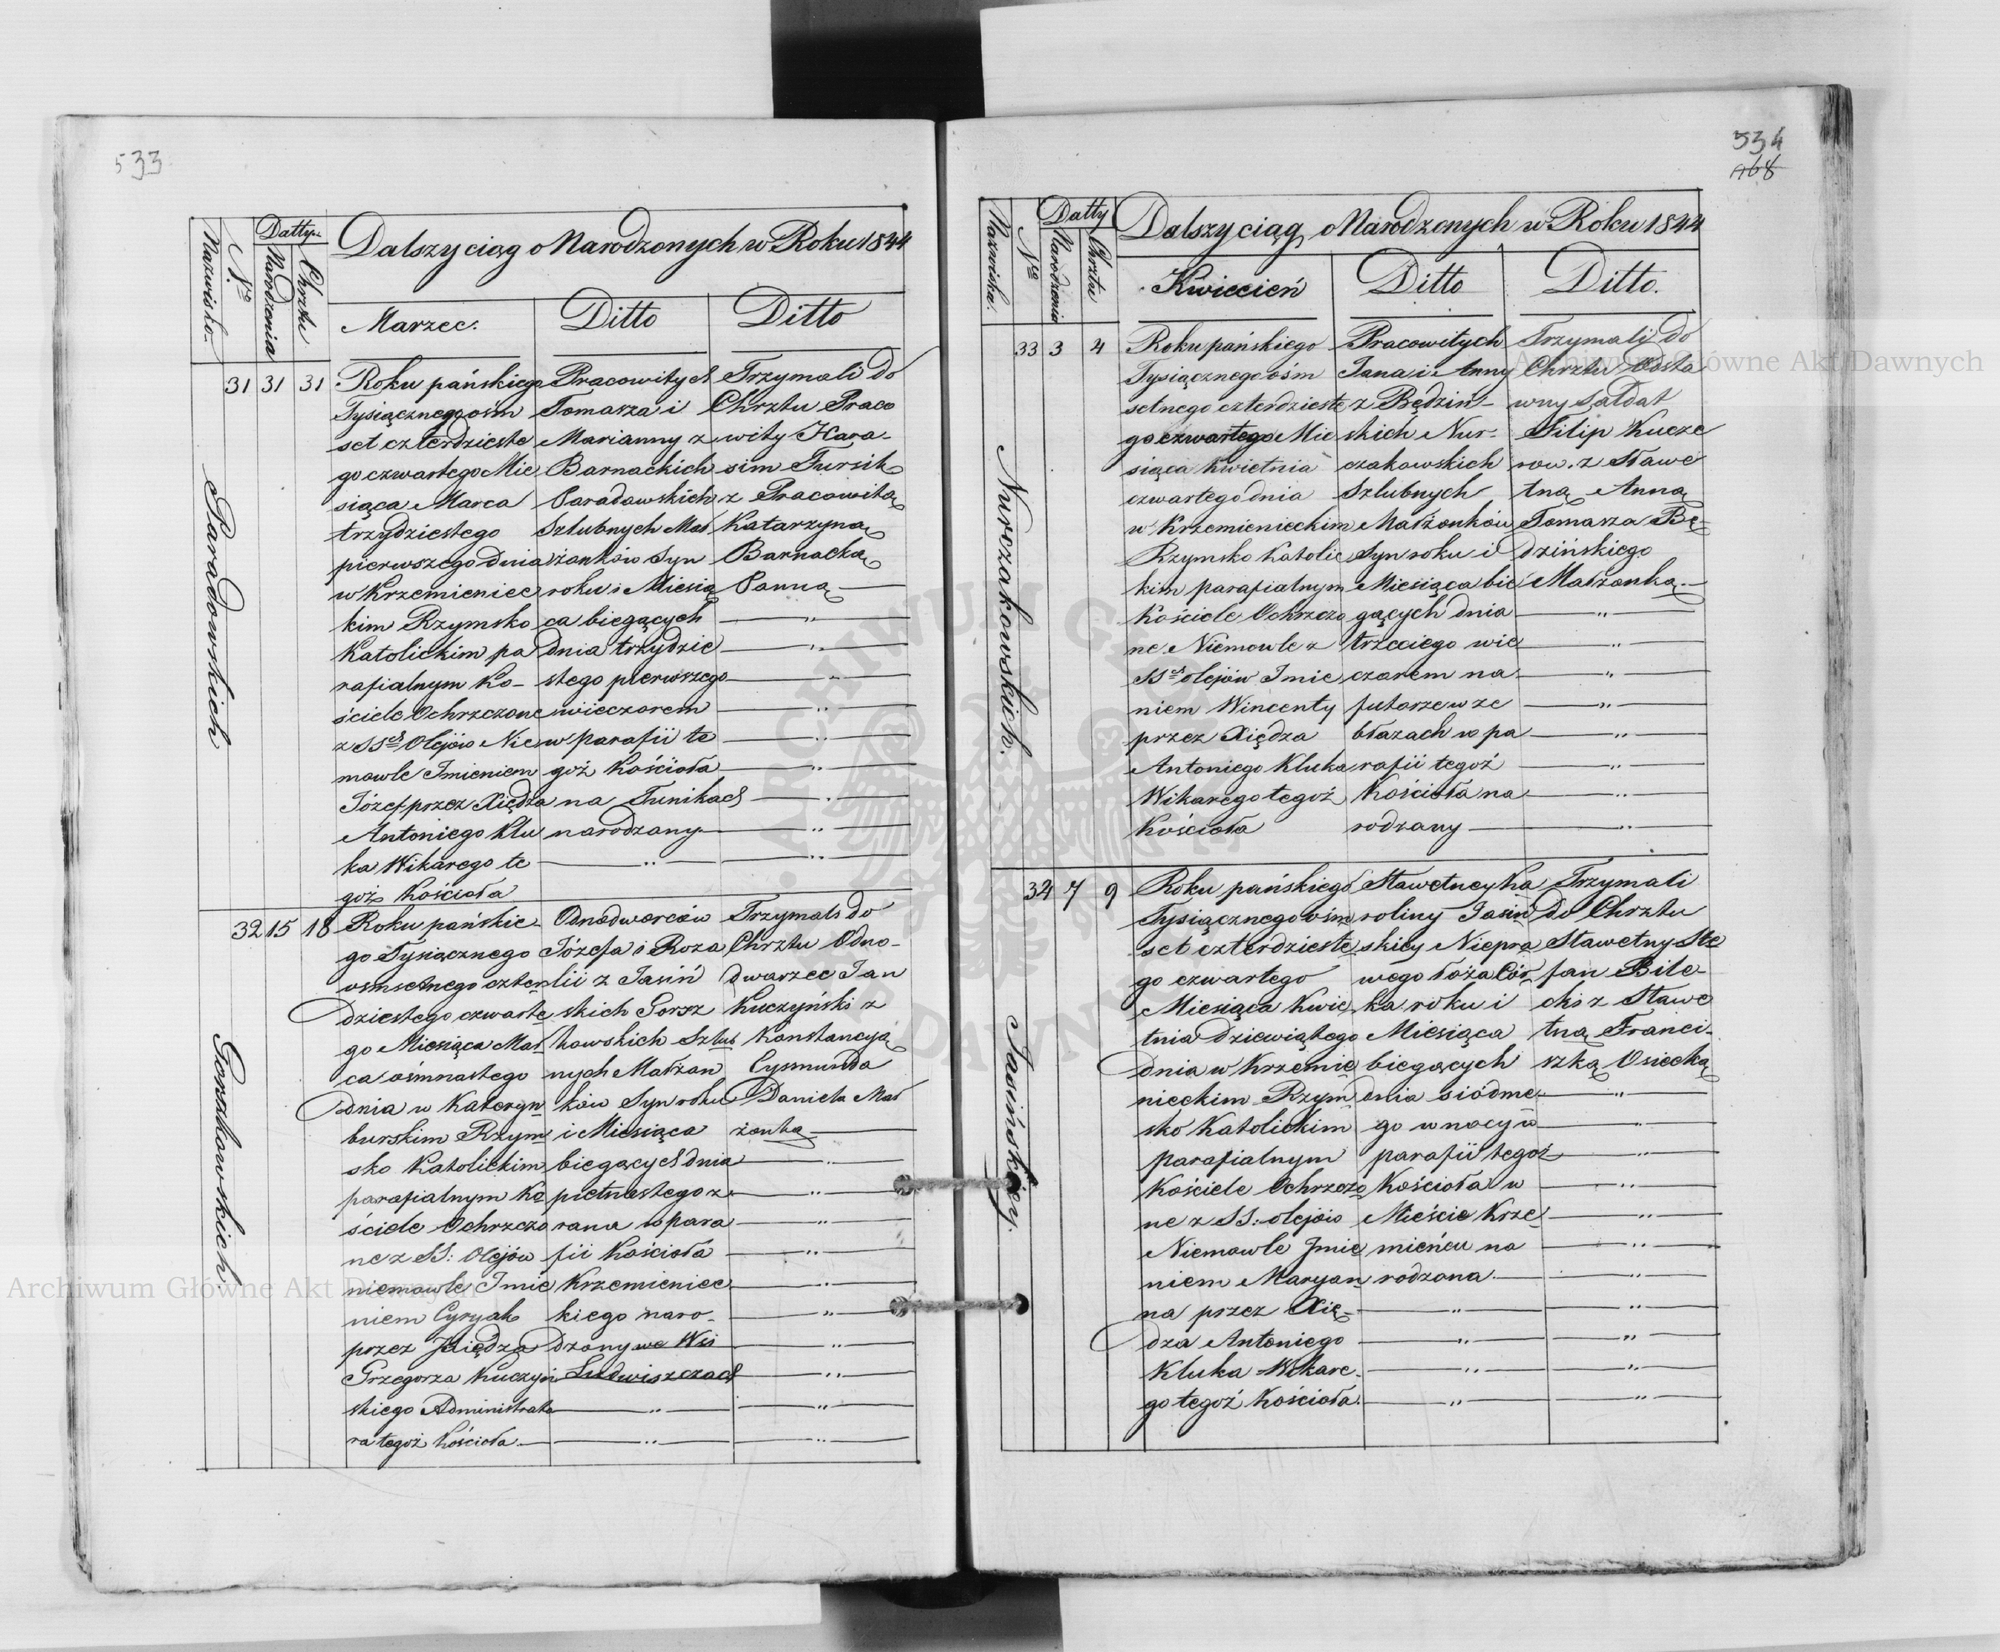 533
Dalszy ciąg o Narodzonych w Roku 1844
Nazwisko
N.º
Datty
Narodzenia
Chrztu
Marzec.
Ditto
Ditto
Paradowskich
31 31 31
Roku pańskiego
Tysiącznego ośm
set czterdzieste
go czwartego Mie
siąca Marca
trzydziestego
pierwszego dnia
w Krzemieniec
kim Rzymsko
Katolickim pa
rafialnym Ko-
ściele Ochrzczone
z SSch Olejów Nie
mowle Imieniem
Józef przez Xiędza
Antoniego Klu
ka Wikarego te
goż Kościoła
Pracowitych
Tomasza i
Marianny z
Barnackich
Paradawskich
Szlubnych Mał
żonków Syn
roku i Miesią
ca biegących
dnia trzydzie
stego pierwszego
wieczorem
w parafii te
goż Kościoła
na Tunikach
narodzany
Trzymali do
Chrztu Praco
wity Hara-
sim Fursik
z Pracowitą
Katarzyną
Barnacką
Panną
Gorzkowskich.
32 15 18
Roku pańskie-
go Tysiącznego
osmsetnego czter
dziestego czwarte
go Miesiąca Mar
ca ośmnastego
dnia w Kateryn
burskim Rzym
sko Katolickim
parafialnym Ko
ściele Ochrzczo
ne z SS: Olejów
niemowle Imie
niem Cyryak
przez Xiędza
Grzegorza Kuczyń
skiego Administrato
ra tegoż Kościoła
Odnodworców
Józefa i Roza
lii z Jasiń
skich Gorsz
kowskich Szlub
nych Małżon
ków Syn roku
i Miesiąca
biegących dnia
pietnastego z
rana w para
fii Kościoła
Krzemieniec
kiego naro-
dzony we Wsi
Ludwiszczach
Trzymali do
Chrztu Odno-
dwarzec Jan
Kuczyński z
Konstancyją
Cysmunda
Daniela Mał
żonką
534
168
Dalszy ciąg o Narodzonych w Roku 1844
Nazwiska.
N.º
Datty
Narodzenia
Chrztu
Kwiecień
Ditto
Ditto.
Nurczakowskich.
33 3 4
Roku pańskiego
Tysiącznego ośm
setnego czterdzieste
go czwartego Mie
siąca Kwietnia
czwartego dnia
w Krzemienieckim
Rzymsko Katolic
kim parafialnym
Kościele Ochrzczo
ne Niemowle z
SSch olejów Imie
niem Wincenty
przez Xiędza
Antoniego Kluka
Wikarego tegoż
Kościoła
Pracowitych
Jana i Anny
z Będziń-
skich Nur-
czakowskich
Szlubnych
Małżonków
Syn roku i
Miesiąca bie
gących dnia
trzeciego wie
czorem na
futorze w ze
błazach w pa
rafii tegoż
Kościoła na
rodzany
Trzymali do
Chrztu Osta
wny Sołdat
Filip Kucze
row. z Sławe
tną Anną
Tomasza Bę-
dzińskiego
Małżonką.
Jasińskiey.
34 7 9
Roku pańskiego
Tysiącznego ośm
set czterdzieste
go czwartego
Miesiąca Kwie
tnia dziewiątego
dnia w Krzemie
nieckim Rzym
sko Katolickim
parafialnym
Kościele Ochrzczo
ne z SS: olejów
Niemowle Imie
niem Maryan
na przez Xię-
dza Antoniego
Kluka Wikare-
go tegoż Kościoła.
Sławetney Ka
roliny Jasiń
skiey Niepra
wego łoża Cór
ka roku i
Miesiąca
biegących
dnia siódme
go w nocy w
parafii tegoż
Kościoła w
Mieście Krze
mieńcu na
rodzona.
Trzymali
do Chrztu
Sławetny Ste
fan Bile-
cki z Sławe
tną Franci-
szką Osiecką
Archiwum Główne Akt Dawnych
Archiwum Główne Akt Dawnych